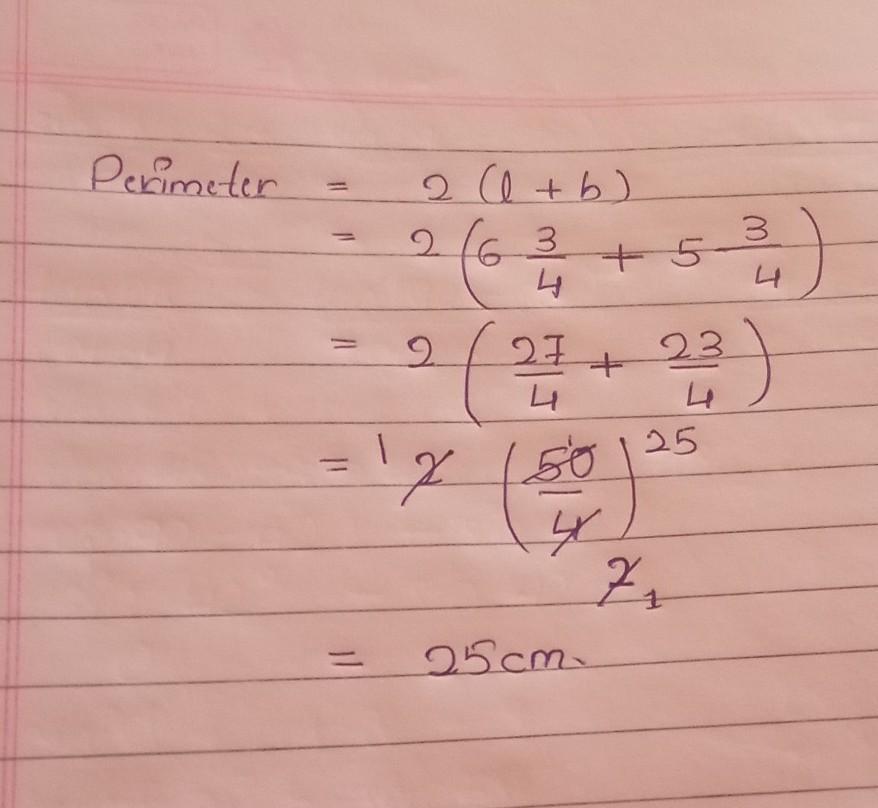 Perimeter = 2 (l + b)
= 2 (6 3/4 + 5 3/4)
= 2 (27/4 + 23/4)
= 1 2 (50/4) 25
2 1
= 25 cm.